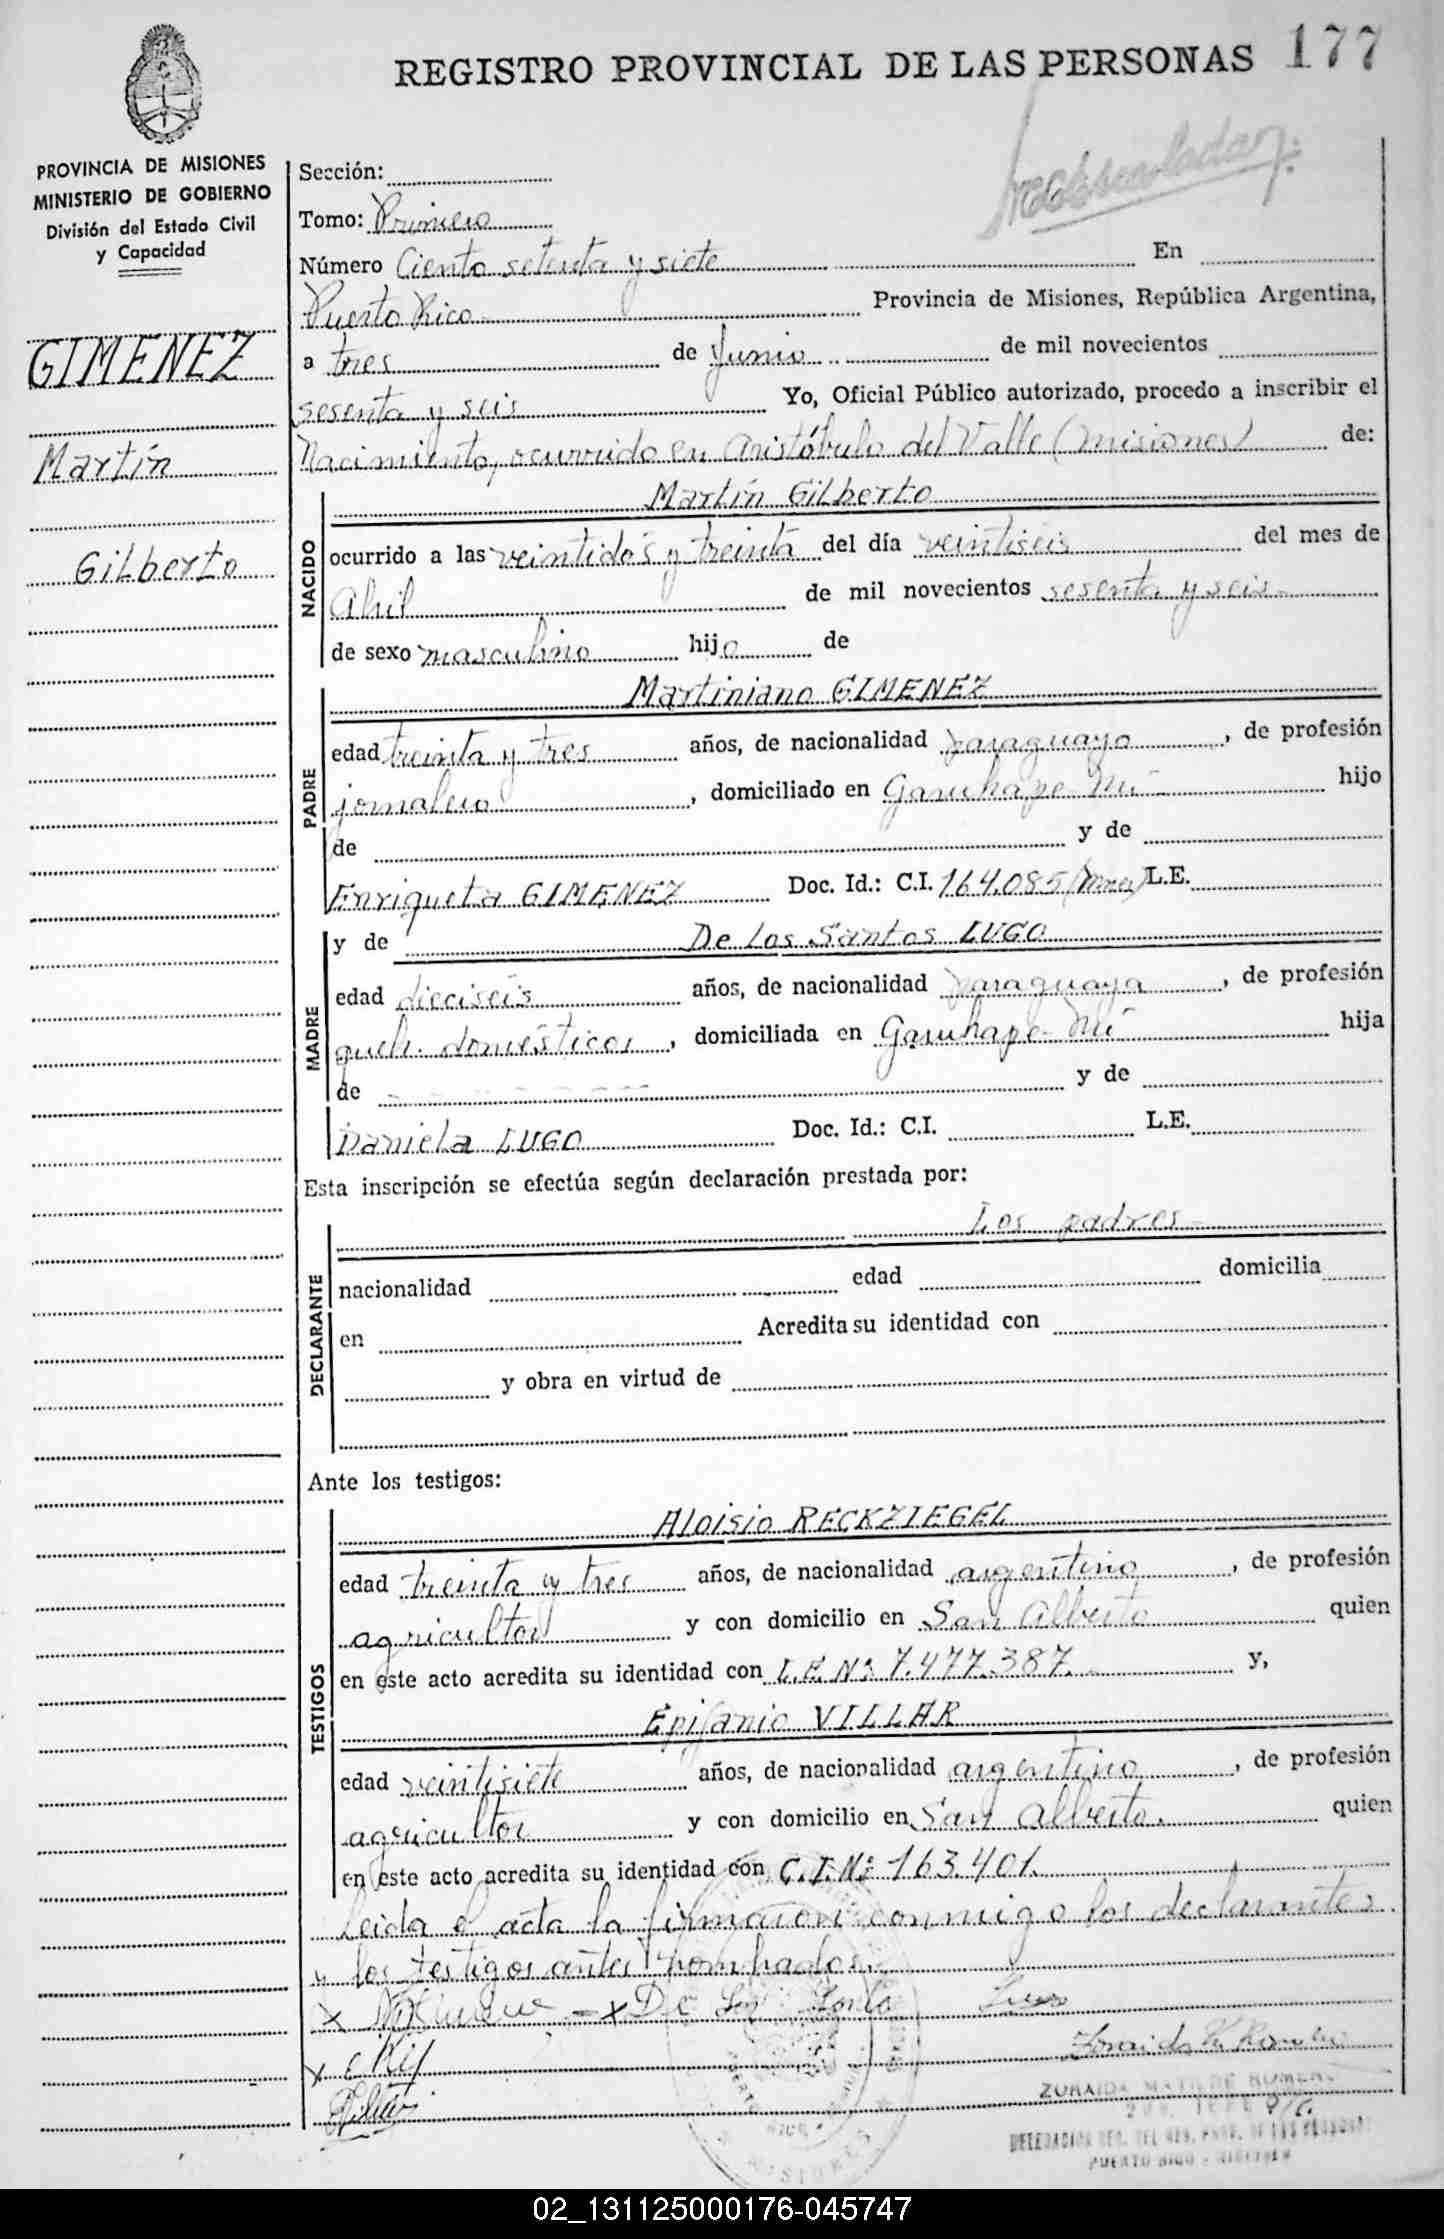 REGISTRO PROVINCIAL DE LAS PERSONAS 177
PROVINCIA DE MISIONES
MINISTERIO DE GOBIERNO
División del Estado Civil
y Capacidad
GIMENEZ
Martín
Gilberto
Sección:
Tomo: Primero
Número Ciento setenta y siete En
Puerto Rico Provincia de Misiones, República Argentina,
a tres de Junio de mil novecientos
sesenta y seis Yo, Oficial Público autorizado, procedo a inscribir el
Nacimiento, ocurrido en Aristóbulo del Valle (Misiones) de:
NACIDO
Martín Gilberto
ocurrido a las veintidós y treinta del día veintiseis del mes de
Abril de mil novecientos sesenta y seis
de sexo masculino hijo de
PADRE
Martiniano GIMENEZ
edad treinta y tres años, de nacionalidad paraguayo, de profesión
jornalero, domiciliado en Garuhape-Mí hijo
de y de
Enriqueta GIMENEZ Doc. Id.: C.I. 164.085 (Mnes) L.E.
MADRE
y de De los Santos LUGO
edad dieciseis años, de nacionalidad paraguaya, de profesión
queh. domésticos, domiciliada en Garuhape-Mí hija
de y de
Daniela LUGO Doc. Id.: C.I. L.E.
Esta inscripción se efectúa según declaración prestada por:
DECLARANTE
Los padres
nacionalidad edad domicilia
en Acredita su identidad con
y obra en virtud de
Ante los testigos:
TESTIGOS
Aloisio RECKZIEGEL
edad treinta y tres años, de nacionalidad argentino, de profesión
agricultor y con domicilio en San Alberto quien
en este acto acredita su identidad con L.E. Nº 7.477.387. y,
Epifanio VILLAR
edad veintisiete años, de nacionalidad argentino, de profesión
agricultor y con domicilio en San Alberto. quien
en este acto acredita su identidad con C.I. Nº 163.401.
Leida el acta la firmaron conmigo los declarantes
y los testigos antes nombrados.
ZORAIDA MATILDE ROMERO
PUERTO RICO - MISIONES
02_131125000176-045747